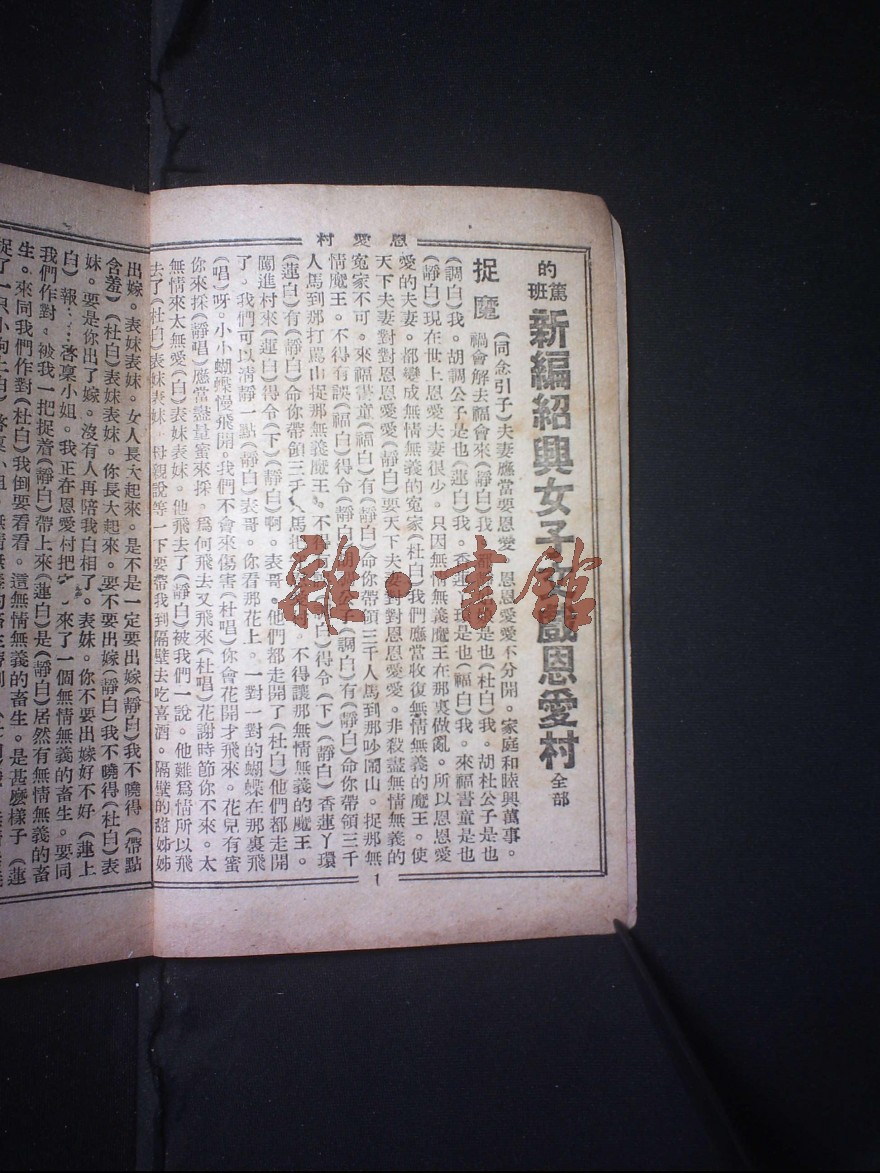 恩愛村
的篤班
新編紹興女子文戲恩愛村
全部
捉魔
(同念引子)夫妻應當要恩愛。恩恩愛愛不分開。家庭和睦興萬事。
禍會解去福會來(靜白)我 是也(杜白)我。胡杜公子是也
(調白)我。胡調公子是也(蓮白)我。香蓮 是也(福白)我。來福書童是也
(靜白)現在世上恩愛夫妻很少。只因無情無義魔王在那裏做亂。所以恩恩愛
愛的夫妻。都變成無情無義的寃家(杜白)我們應當收復無情無義的魔王。使
天下夫妻對對恩恩愛愛(靜白)要天下夫妻對對恩恩愛愛。非殺盡無情無義的
寃家不可。來福書童(福白)有(靜白)命你帶領三千人馬到那吵鬧山。捉那無
情魔王。不得有誤(福白)得令(靜白)胡調 (調白)有(靜白)命你帶領三千
人馬到那打罵山捉那無義魔王。不得有 白)得令(下)(靜白)香蓮丫環
(蓮白)有(靜白)命你帶領三千人馬把 。不得讓那無情無義的魔王。
闖進村來(蓮白)得令(下)(靜白)啊。表哥。他們都走開了(杜白)他們都走開
了。我們可以清靜一點(靜白)表哥。你看那花上。一對一對的蝴蝶在那裏飛
(唱)呀。小小蝴蝶慢飛開。我們不會來傷害(杜唱)你會花開才飛來。花兒有蜜
你來採(靜唱)應當盡量蜜來採。爲何飛去又飛來(杜唱)花謝時節你不來。太
無情來太無愛(白)表妹表妹。他飛去了(靜白)被我們一說。他難爲情所以飛
去了(杜白)表妹表妹。母親說等一下要帶我到隔壁去吃喜酒。隔壁的甜姊姊
1
出嫁。表妹表妹。女人長大起來。是不是一定要出嫁(靜白)我不曉得(帶點
含羞)(杜白)表妹表妹。你長大起來。要不要出嫁(靜白)我不曉得(杜白)表
妹。要是你出了嫁。沒有人再陪我白相了。表妹。你不要出嫁好不好(蓮上
白)報……啓稟小姐。我正在恩愛村把 來了一個無情無義的畜生。要同
我們作對。被我一把捉着(靜白)帶上來(蓮白)是(靜白)居然有無情無義的畜
生。來同我們作對(杜白)我倒要看看。這無情無義的畜生。是甚麽樣子(蓮
捉了一只小狗上白)啓稟小姐。無情無義的畜生
雜·書館